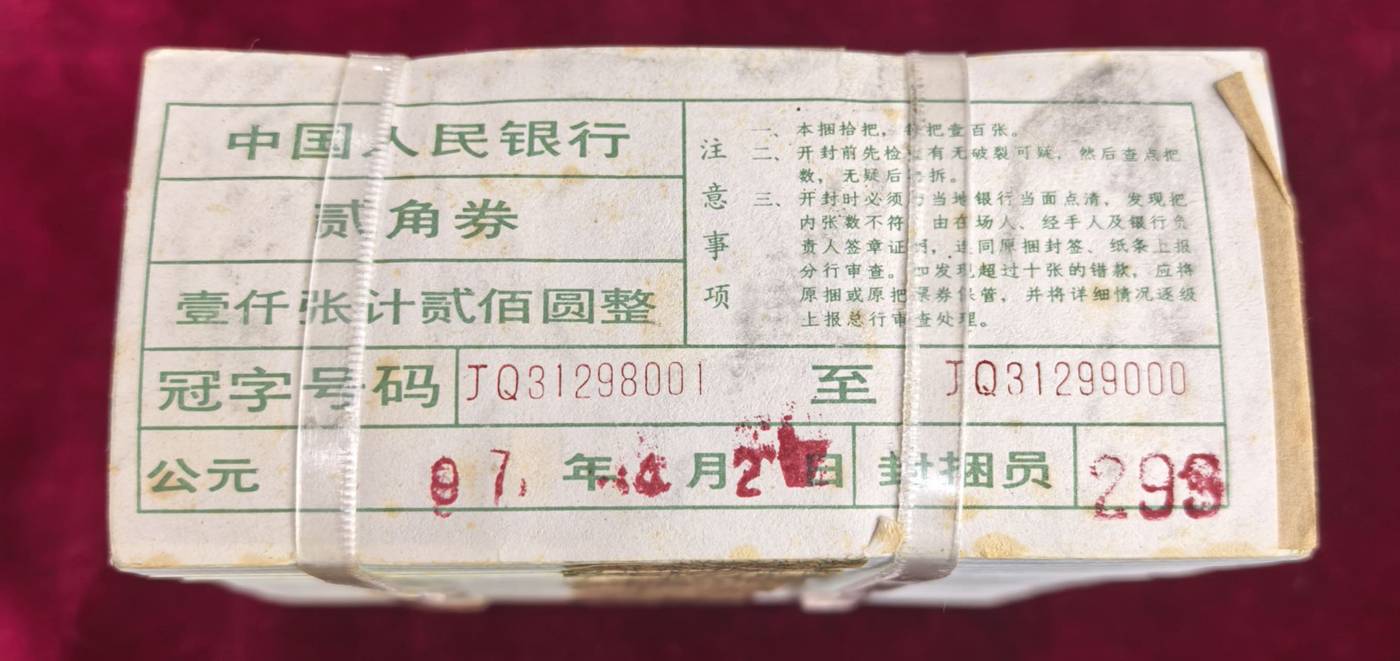 中国人民银行
贰角券
壹仟张计贰佰圆整
注意事项
一、本捆拾把，把壹百张。
二、开封前先检 有无破裂可疑，然后查点把
数，无疑后 拆。
三、开封时必须 当地银行当面点清，发现把
内张数不符 由在场人、经手人及银行负
责人签章证 ，连同原捆封签、纸条上报
分行审查。如发现超过十张的错款，应将
原捆或原把票券保管，并将详细情况逐级
上报总行审查处理。
冠字号码 JQ31298001 至 JQ31299000
公元 97 年 月 2 日 封捆员 29